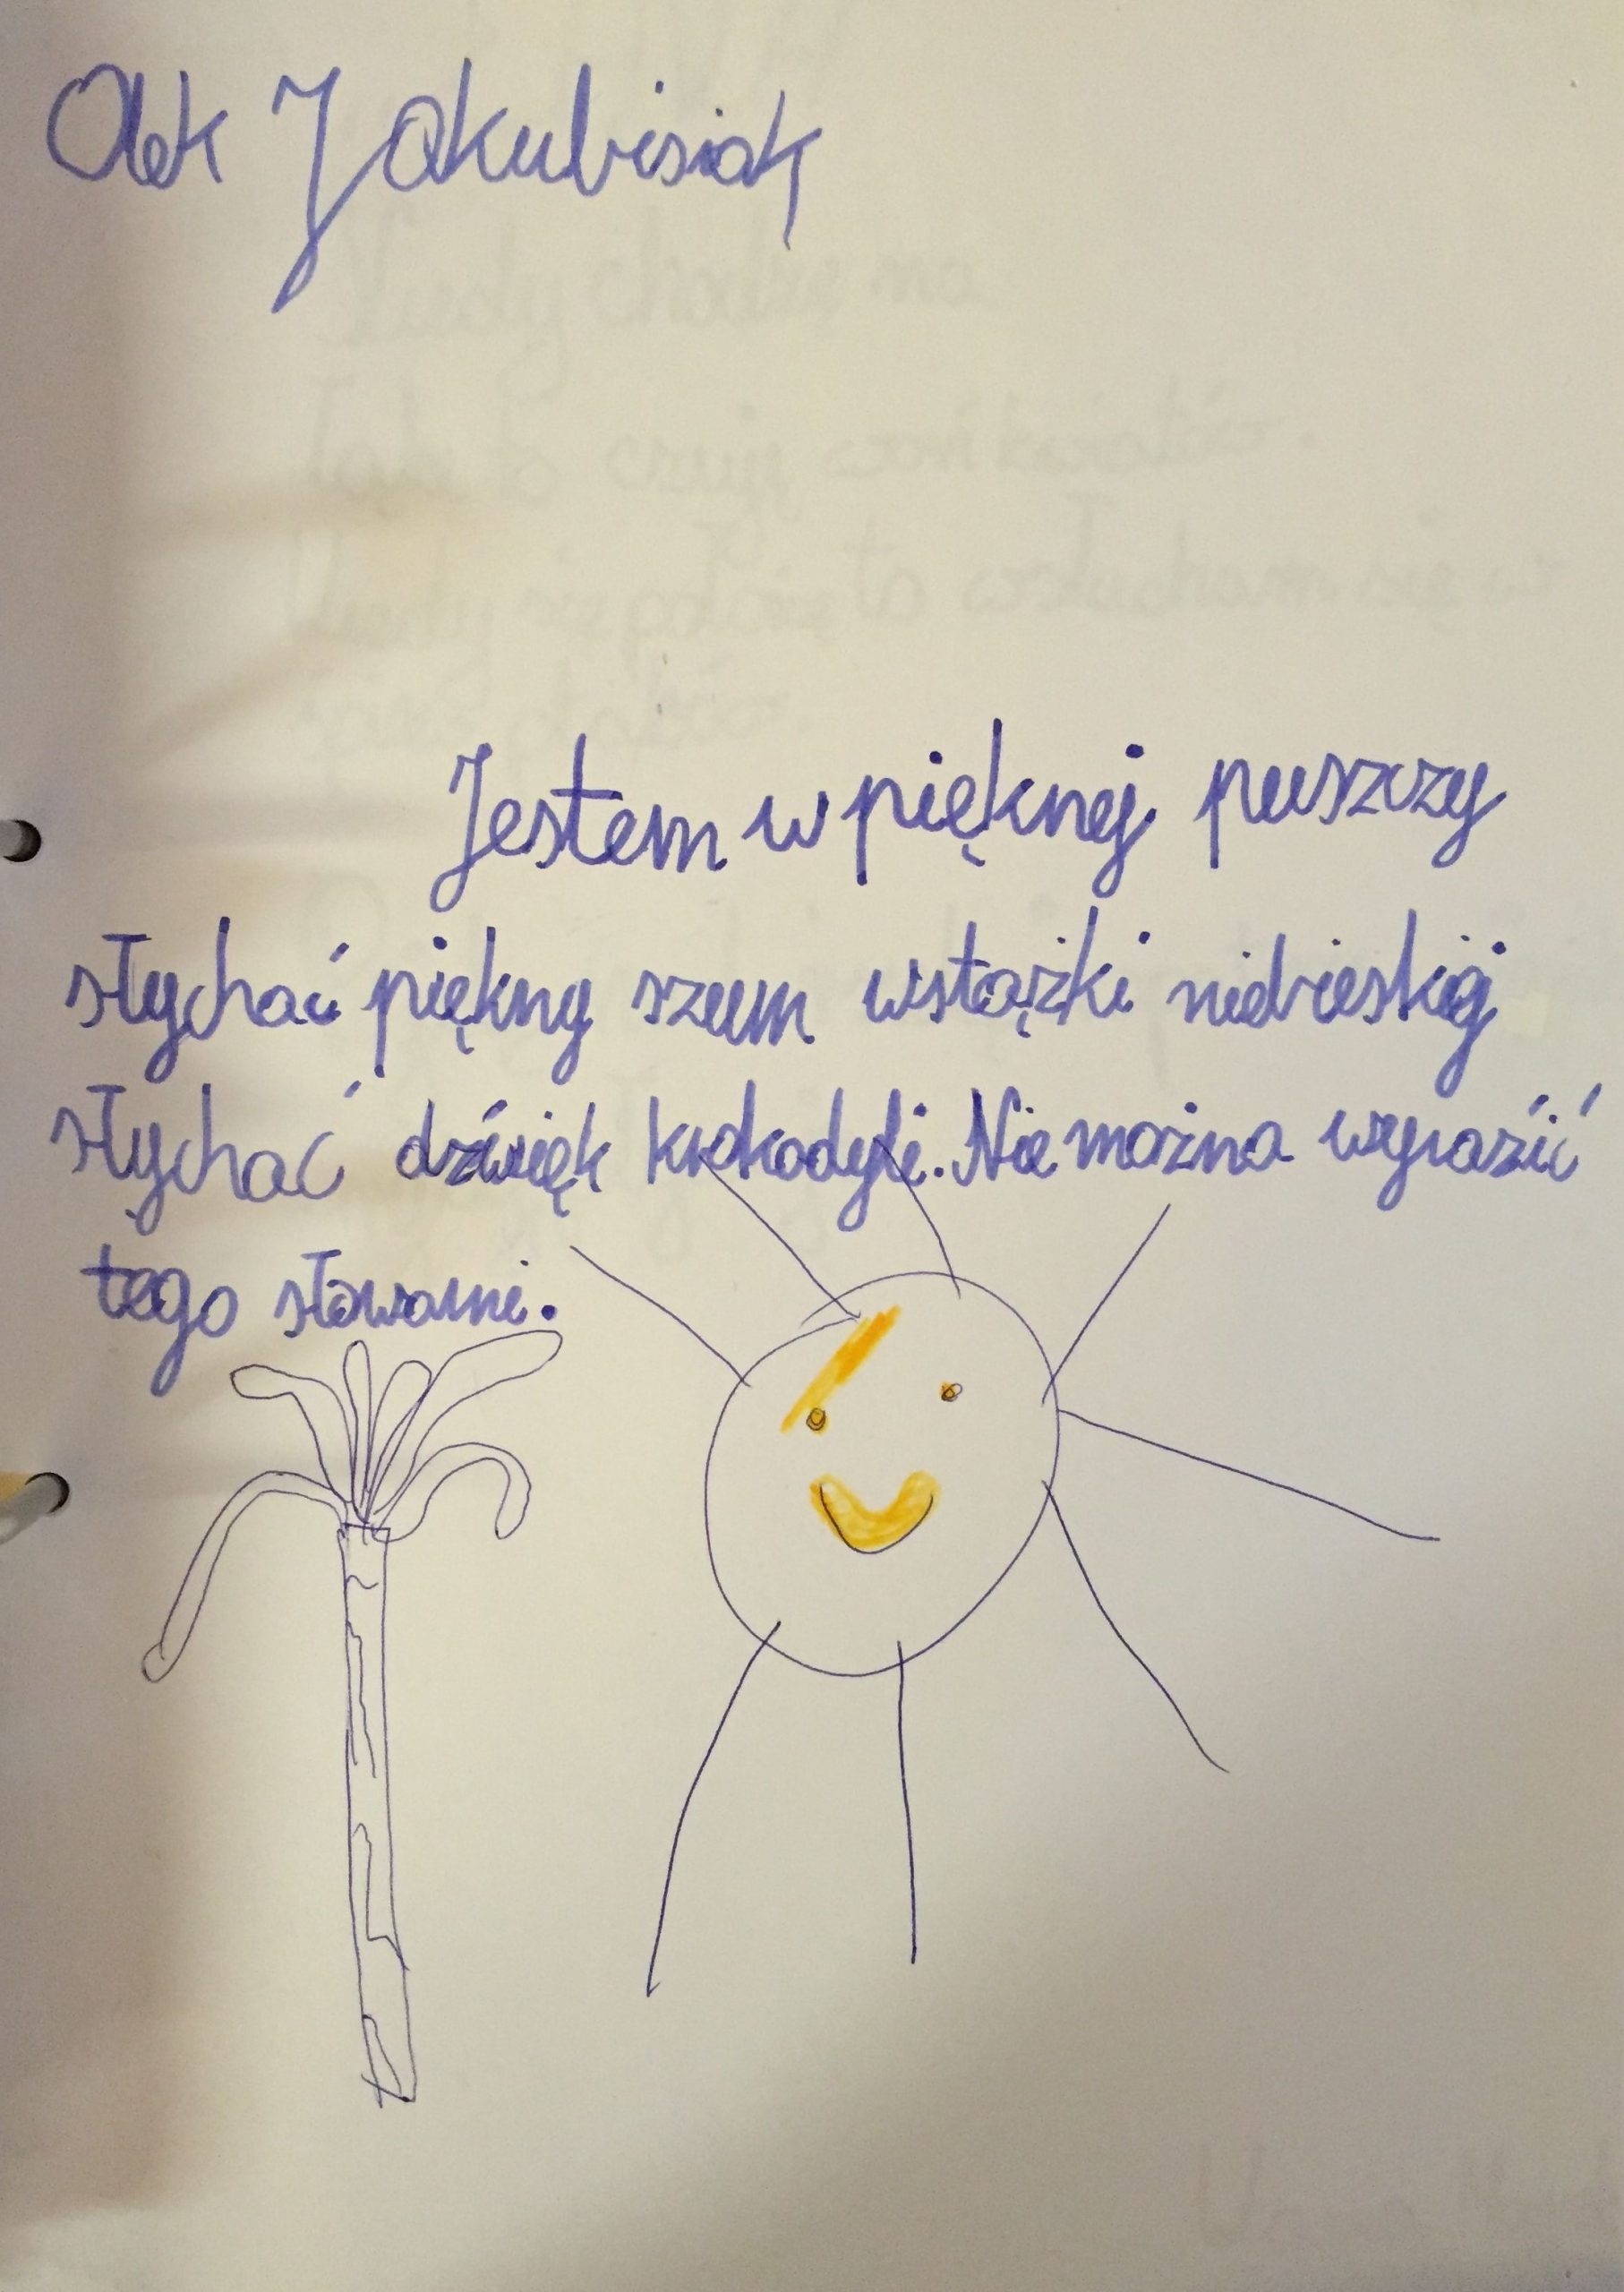 Olek Jakubisiak
Jestem w pięknej puszczy
słychać piękny szum wstążki niebieskiej
słychać dźwięk krokodyli. Nie można wyrazić
tego słowami.